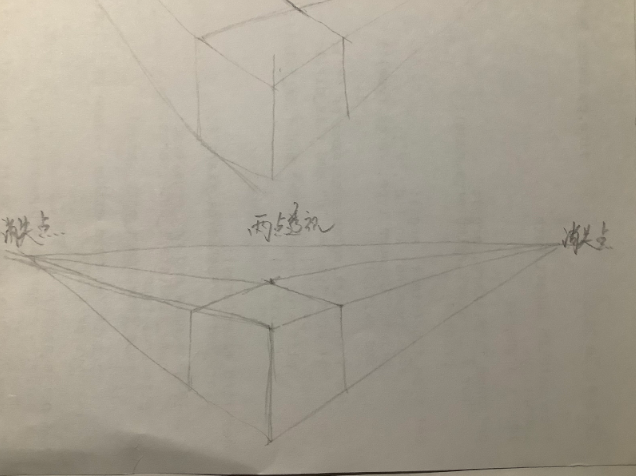 消失点
两点透视
消失点